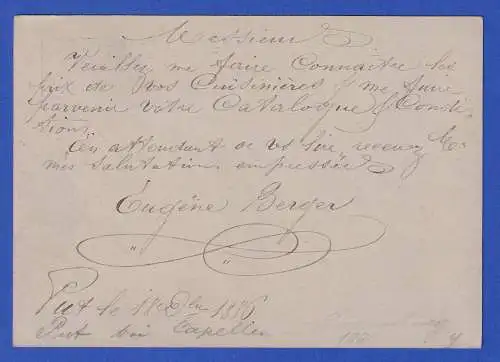 Messieurs
Veuillez me faire Connaître les
prix de vos Cuisinières & me faire
parvenir votre Catalogue & Condi-
tions,
En attendant de vs lire, recevez Me
mes salutations empressées
Eugène Berger
Put le 18 1886
Put bei Capellen